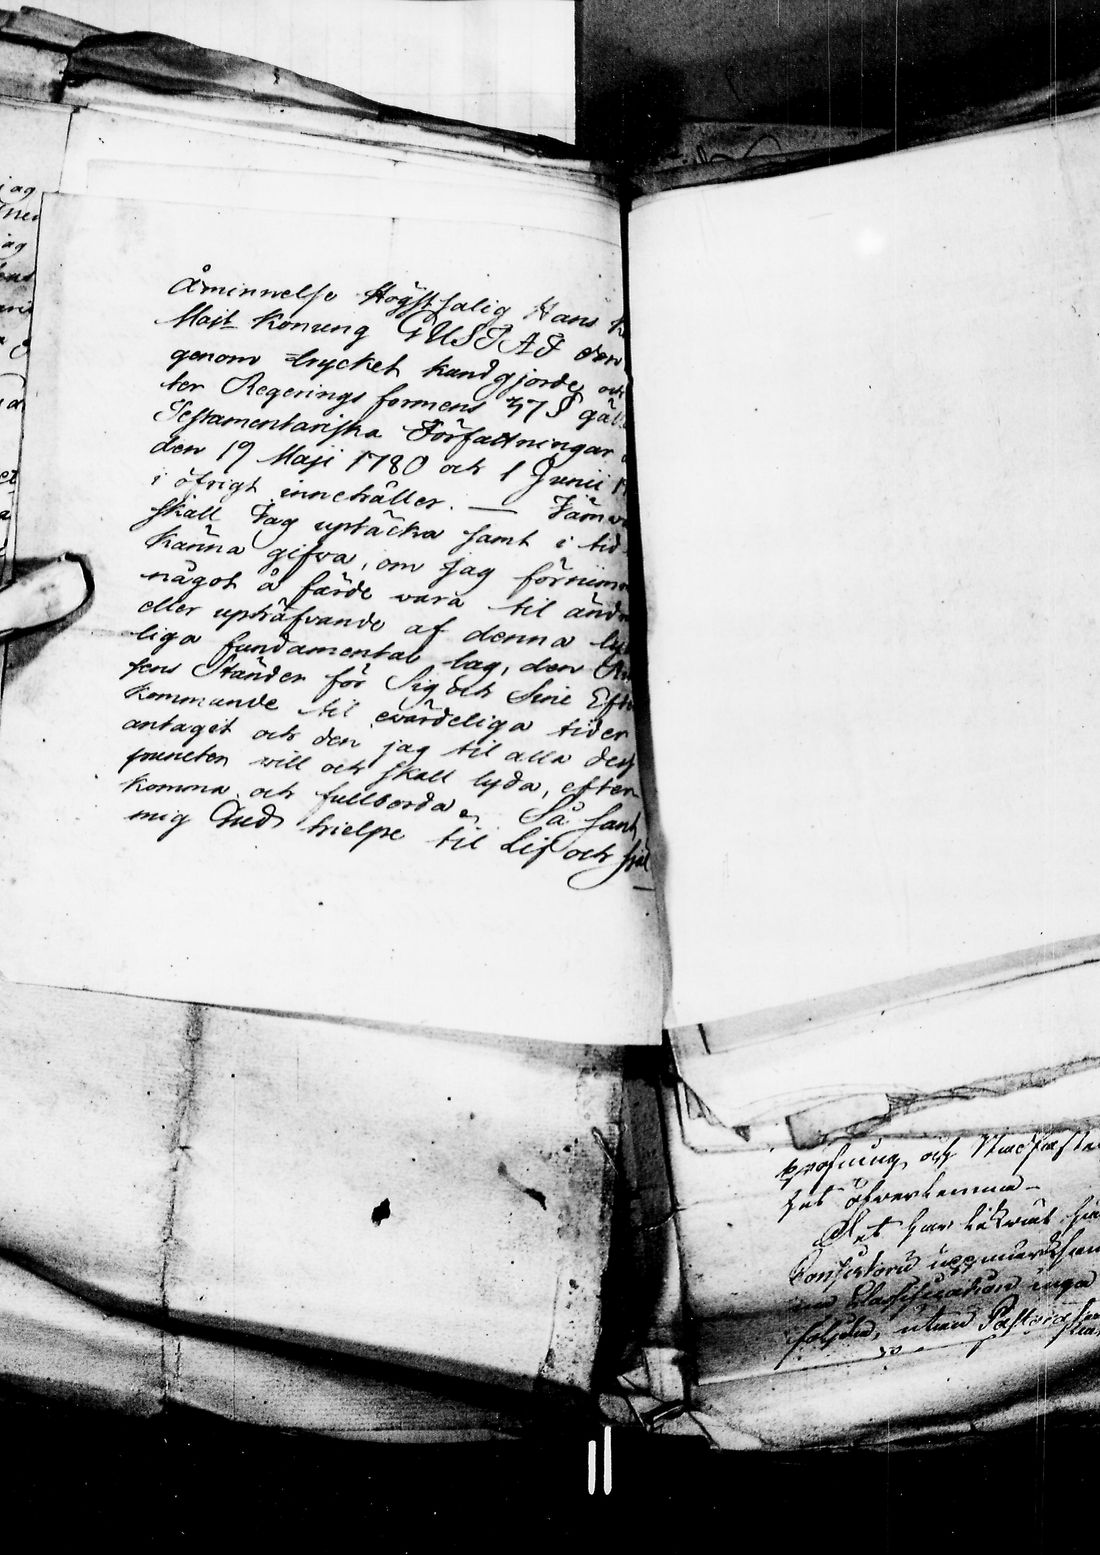 Åminnelse Högstsalig Hans K
Majt Konung GUSTAF den
genom trycket kundgjorde och
ter Regerings formens 37 § gäll
Testamentariska Författningar
den 19 Maji 1780 och 1 Junii 17
i öfrigt innehåller. — Jämvä
skall Jag uptäcka samt i tid
känna gifva, om Jag förnimm
något å färde vara til ändr
eller uphäfvande af denna ly
liga fundamental lag, den Ri
sens Ständer för Sig och Sine Eft
kommande til evärdeliga tider
antagit och den jag til alla dess
puncter will och skall lyda, efter
komma och fullborda. Så sant
mig Gud hielpe til Lif och själ
jag
jag
pröfning och Stadfäste
het öfverlemna —
Det har likväl
Consistorii uppmärksam
Classification inga
följder, utan Pastorat